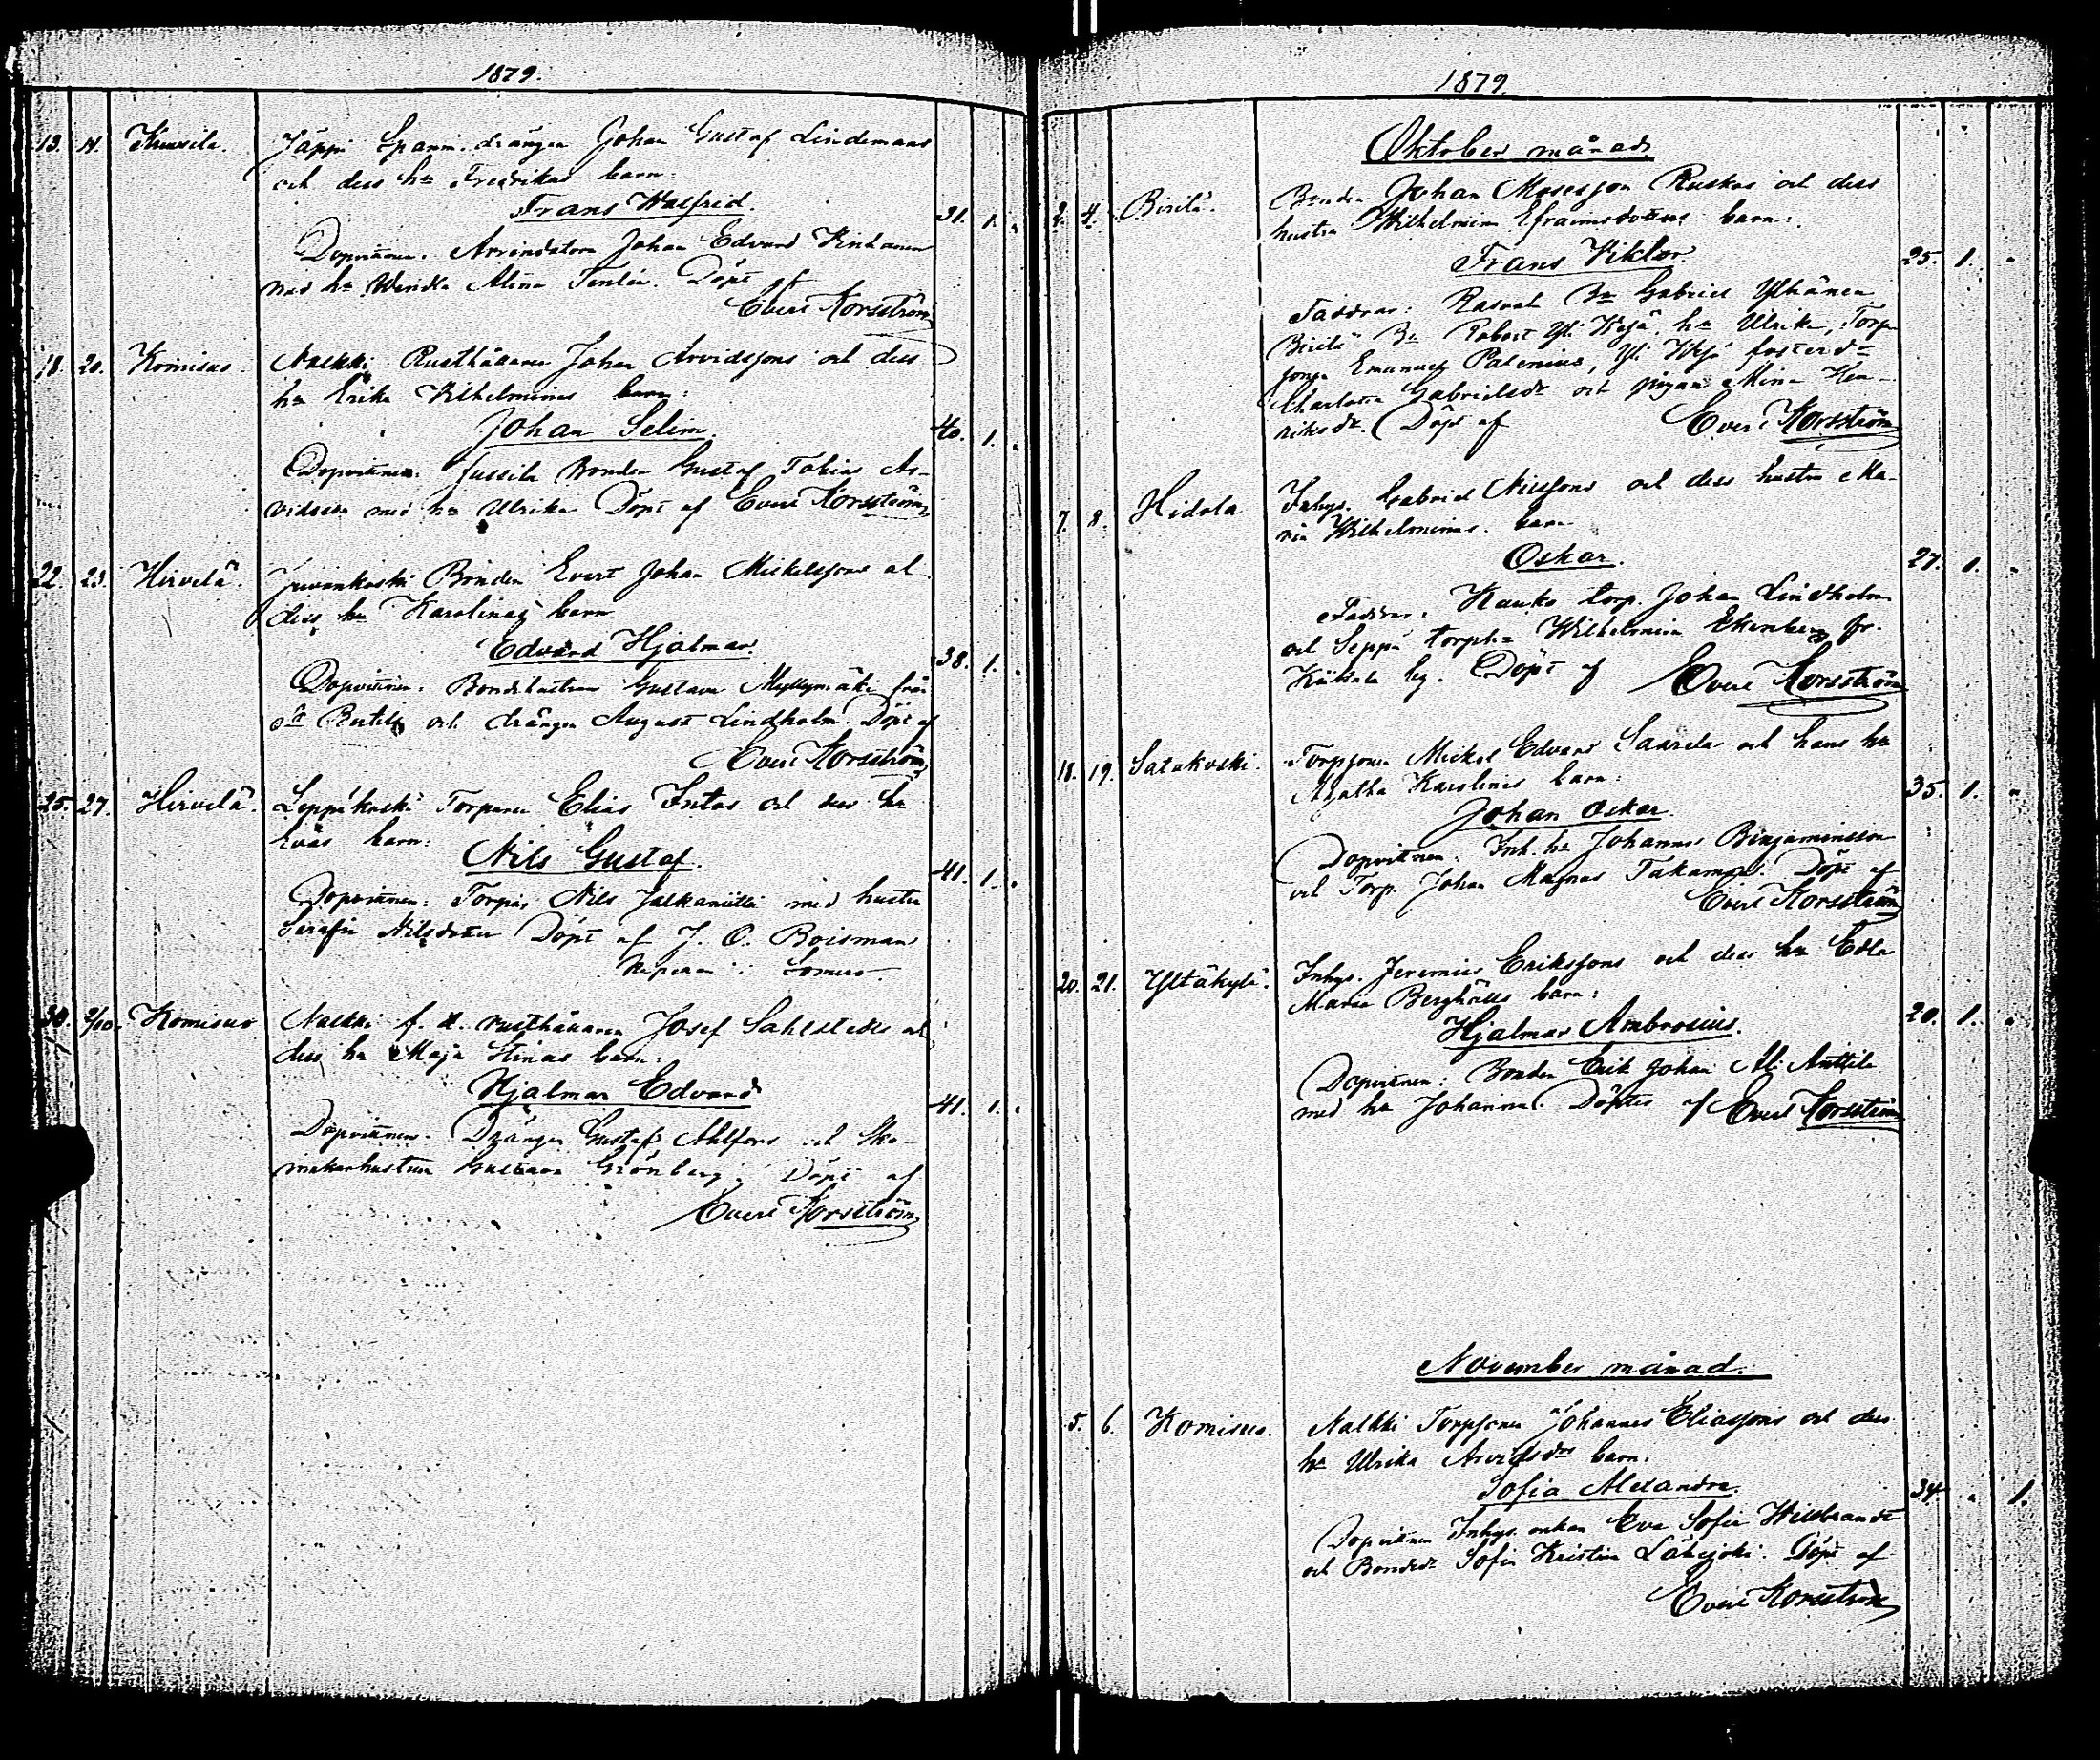 1879.
13. 14. Kuusila. Jäppi Spanm. drängen Johan Gustaf Lindemans
och dess hu Fredrikas barn:
Frans Walfrid.
31. 1.
Dopvittnen. Arrendatorn Johan Edvard
med hu Wendla Alina Tenlén. Döpt af
Evert Korsström
18. 20. Komisuo. Nalkki Rusthållaren Johan Arvidssons och dess
hu Erika Wilhelminas barn:
Johan Selim.
40. 1.
Dopvittnen. Jussila Bonden Gustaf Tobias Ar-
vidsson med hu Ulrika Döpt af Evert Korsström
22. 23. Hirvelä. Juvankoski Bonden Evert Johan Mickelssons och
dess hu Karolinas barn
Edvard Hjalmar.
38. 1.
Dopvittnen. Bondehustrun Gustava Myllymäki från
St Bertils och drängen August Lindholm. Döpt af
Evert Korsström
25. 27. Hirvelä. Leppäkoski Torparen Elias Intos och dess hu
Evas barn:
Nils Gustaf.
41. 1.
Dopvittnen: Torpar. Nils Jalkaniitti med hustru
Serafia Nilsdotter Döpt af J. O. Roisman
Kaplan i Somero
30. 2/10. Komisuo Nalkki f. d. rusthållaren Josef Sahlstedts och
dess hu Maja Stinas barn:
Hjalmar Edvard
41. 1.
Dopvittnen. Drängen Gustaf Ahlfors och Sko-
makarhustrun Gustava Grönberg. Döpt af
Evert Korsström
1879.
Oktober månad.
2. 4. Pirilä. Bonden Johan Mosesson Ruskas och dess
hustru Wilhelmina Efraimsdotters barn:
Frans Viktor.
25. 1.
Faddrar: Rasvala Bn Gabriel Yltänen
Pirilä Bn Robert Yli Kesä, hu Ulrika, Torp
sonen Emanuel Palenius, Yli Kesä fosterdr
Charlotta Gabrielsdr och pigan Mina Hen-
riksdr. Döpt af Evert Korsström
7. 8. Hidola Inhys. Gabriel Nilssons och dess hustru Ma-
ria Wilhelminas barn
Oskar.
27. 1.
Faddrar. Kauko torp. Johan Lindholm
och Seppä torphu Wilhelmina Ekenberg fr.
Kiikala by. Döpt af Evert Korsström
18. 19. Satakoski. Torpsonen Mickel Edvard Saarela och hans hu
Agatha Karolinas barn:
Johan Oskar.
35. 1.
Dopvittnen: Inh. hu Johanna Binjaminsson
och Torp. Johan Magnus Takamaa. Döpt af
Evert Korsström
20. 21. Yltäkylä. Inhys. Jeremias Erikssons och dess hu Edla
Maria Berghälls barn:
Hjalmar Ambrosius.
20. 1.
Dopvittnen: Bonden Erik Johan Ali Anttila
med hu Johanna. Döptes af Evert Korsström
November månad.
5. 6. Komisuo. Nalkki Torpsonen Johannes Eliassons och dess
hu Ulrika Arvidsdrs barn.
Sofia Alexandra.
34. 1.
Dopvittnen Inhys. enkan Eva Sofia Hildbrandt
och Bondedr Sofia Kristina Lähejoki. Döpt af
Evert Korsström